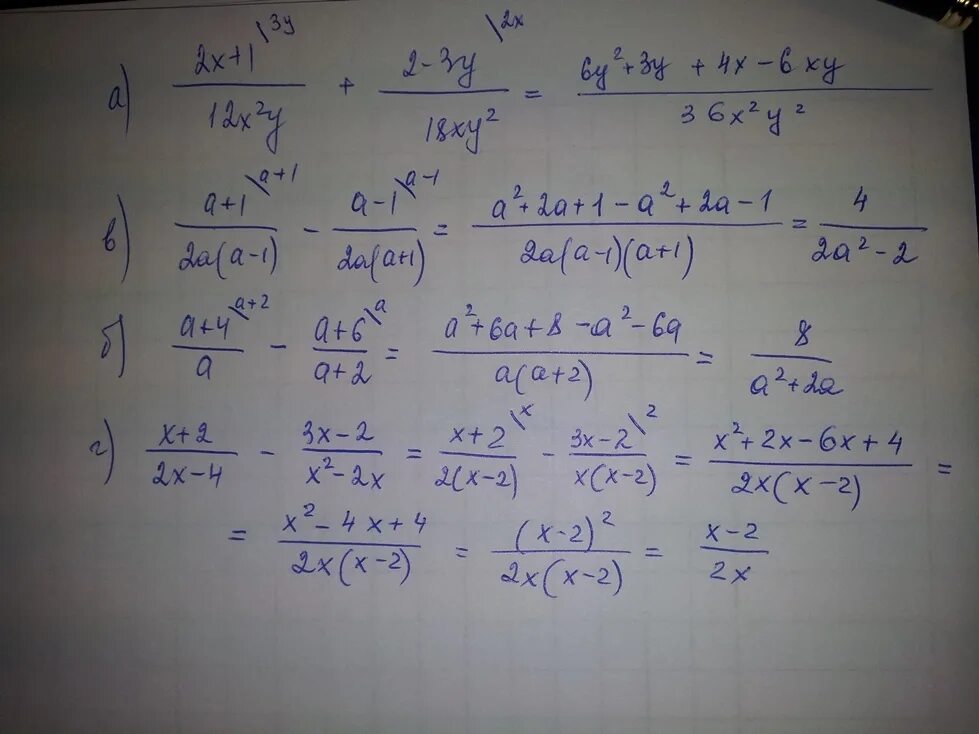 а) (2x+1)\3y / 12x²y + (2-3y)\2x / 18xy² = (6y²+3y + 4x-6xy) / 36x²y²
в) (a+1)\a+1 / 2a(a-1) - (a-1)\a-1 / 2a(a+1) = (a²+2a+1-a²+2a-1) / 2a(a-1)(a+1) = 4 / (2a²-2)
б) (a+4)\a+2 / a - (a+6)\a / (a+2) = (a²+6a+8-a²-6a) / a(a+2) = 8 / (a²+2a)
г) (x+2) / (2x-4) - (3x-2) / (x²-2x) = (x+2)\x / 2(x-2) - (3x-2)\2 / x(x-2) = (x²+2x-6x+4) / 2x(x-2) =
= (x²-4x+4) / 2x(x-2) = (x-2)² / 2x(x-2) = (x-2) / 2x